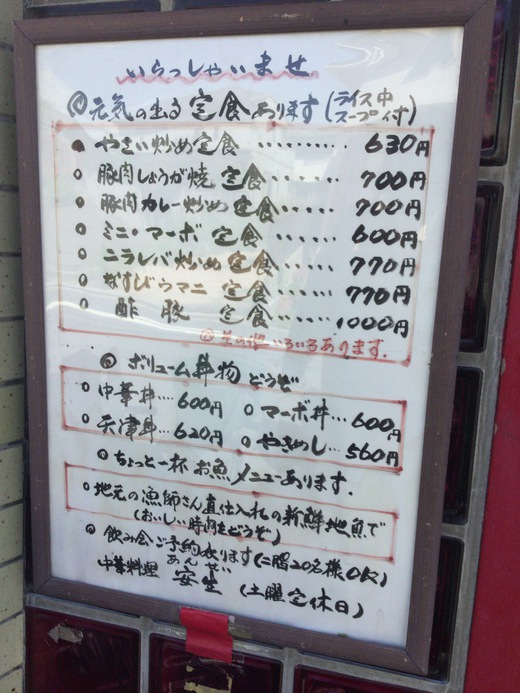 いらっしゃいませ
◎元気の出る定食あります(ライス中スープ付)
やさい炒め定食 ‥‥‥‥ 630円
豚肉しょうが焼 定食 ‥‥‥ 700円
豚肉カレー炒め 定食 ‥‥‥ 700円
ミニ・マーボ 定食 ‥‥‥ 600円
ニラレバ炒め 定食 ‥‥‥ 770円
なすピリウマニ 定食 ‥‥‥ 770円
酢豚 定食 ‥‥‥ 1000円
◎その他いろいろあります.
◎ ボリューム丼物 どうぞ
○中華丼… 600円 ○マーボ丼… 600円
○天津丼… 620円 ○やきめし… 560円
◎ちょっと一杯 お魚メニューあります.
◎地元の漁師さん直仕入れの新鮮地魚で
(おいしい時間をどうぞ)
◎飲み会ご予約承ります(二階20名様OK)
中華料理 (土曜定休日)